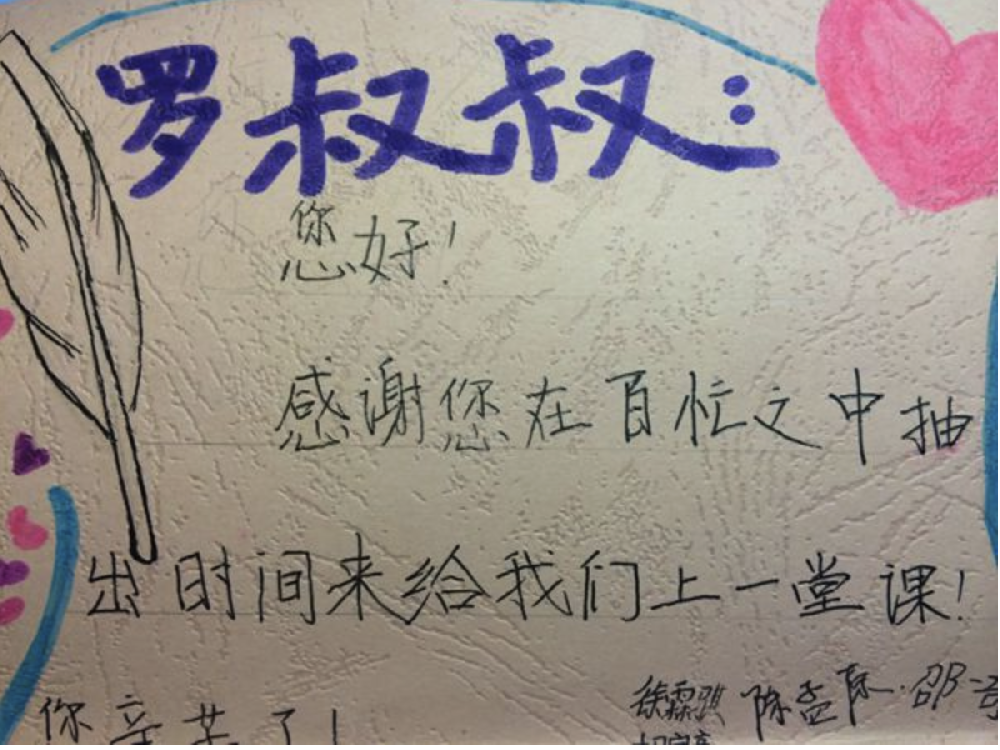 罗叔叔:
您好!
感谢您在百忙之中抽
出时间来给我们上一堂课!
你辛苦了!
徐霖骐 陈孟